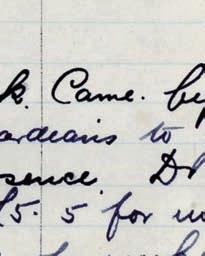 k. Came. by
ardians to
sence. Dr
£5. 5 for